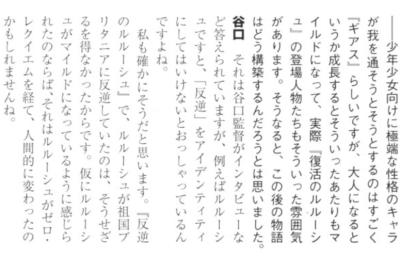 ──少年少女向けに極端な性格のキャラ
が我を通そうとそうとするのはすごく
『ギアス』らしいですが、大人になると
いうか成長するとそういったあたりもマ
イルドになって、実際『復活のルルーシ
ュ』の登場人物たちもそういった雰囲気
があります。そうなると、この後の物語
はどう構築するんだろうとは思いました。
谷口　それは谷口監督がインタビューな
ど答えられていますが、例えばルルーシ
ュですと、「反逆」をアイデンティティ
にしてはいけないとおっしゃっているん
ですよね。
　私も確かにそうだと思います。『反逆
のルルーシュ』で、ルルーシュが祖国ブ
リタニアに反逆していたのは、そうせざ
るを得なかったからです。仮にルルーシ
ュがマイルドになっているように感じら
れたのならば、それはルルーシュがゼロ・
レクイエムを経て、人間的に変わったの
かもしれませんね。